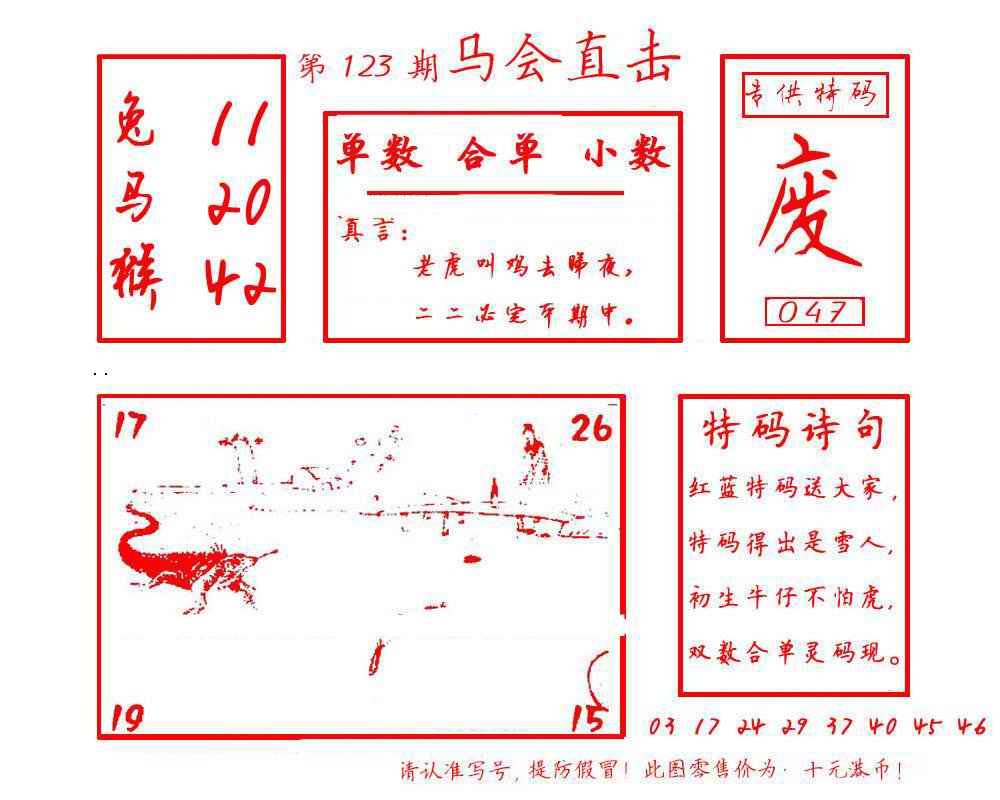 第 123 期 马会直击
兔 11
马 20
猴 42
单数 合单 小数
真言：
老虎叫鸡去睇夜，
二二必定平期中。
专供特码
废
047
17
26
19
15
特码诗句
红蓝特码送大家，
特码得出是雪人，
初生牛仔不怕虎，
双数合单灵码现。
03 17 24 29 37 40 45 46
请认准写号，提防假冒！此图零售价为·十元港币！